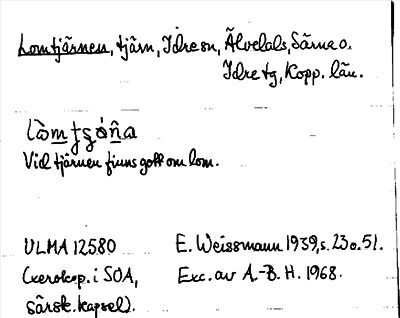 Lomtjärnen, tjärn, Idre sn, Älvdals, Särna o.
Idre tg, Kopp. län.
Vid tjärnen finns gott om lom.
ULMA 12580 E. Weissmann 1939, s. 23 o. 51.
(xerokop. i SOA, Exc. av A.-B. H. 1968.
särsk. kapsel).